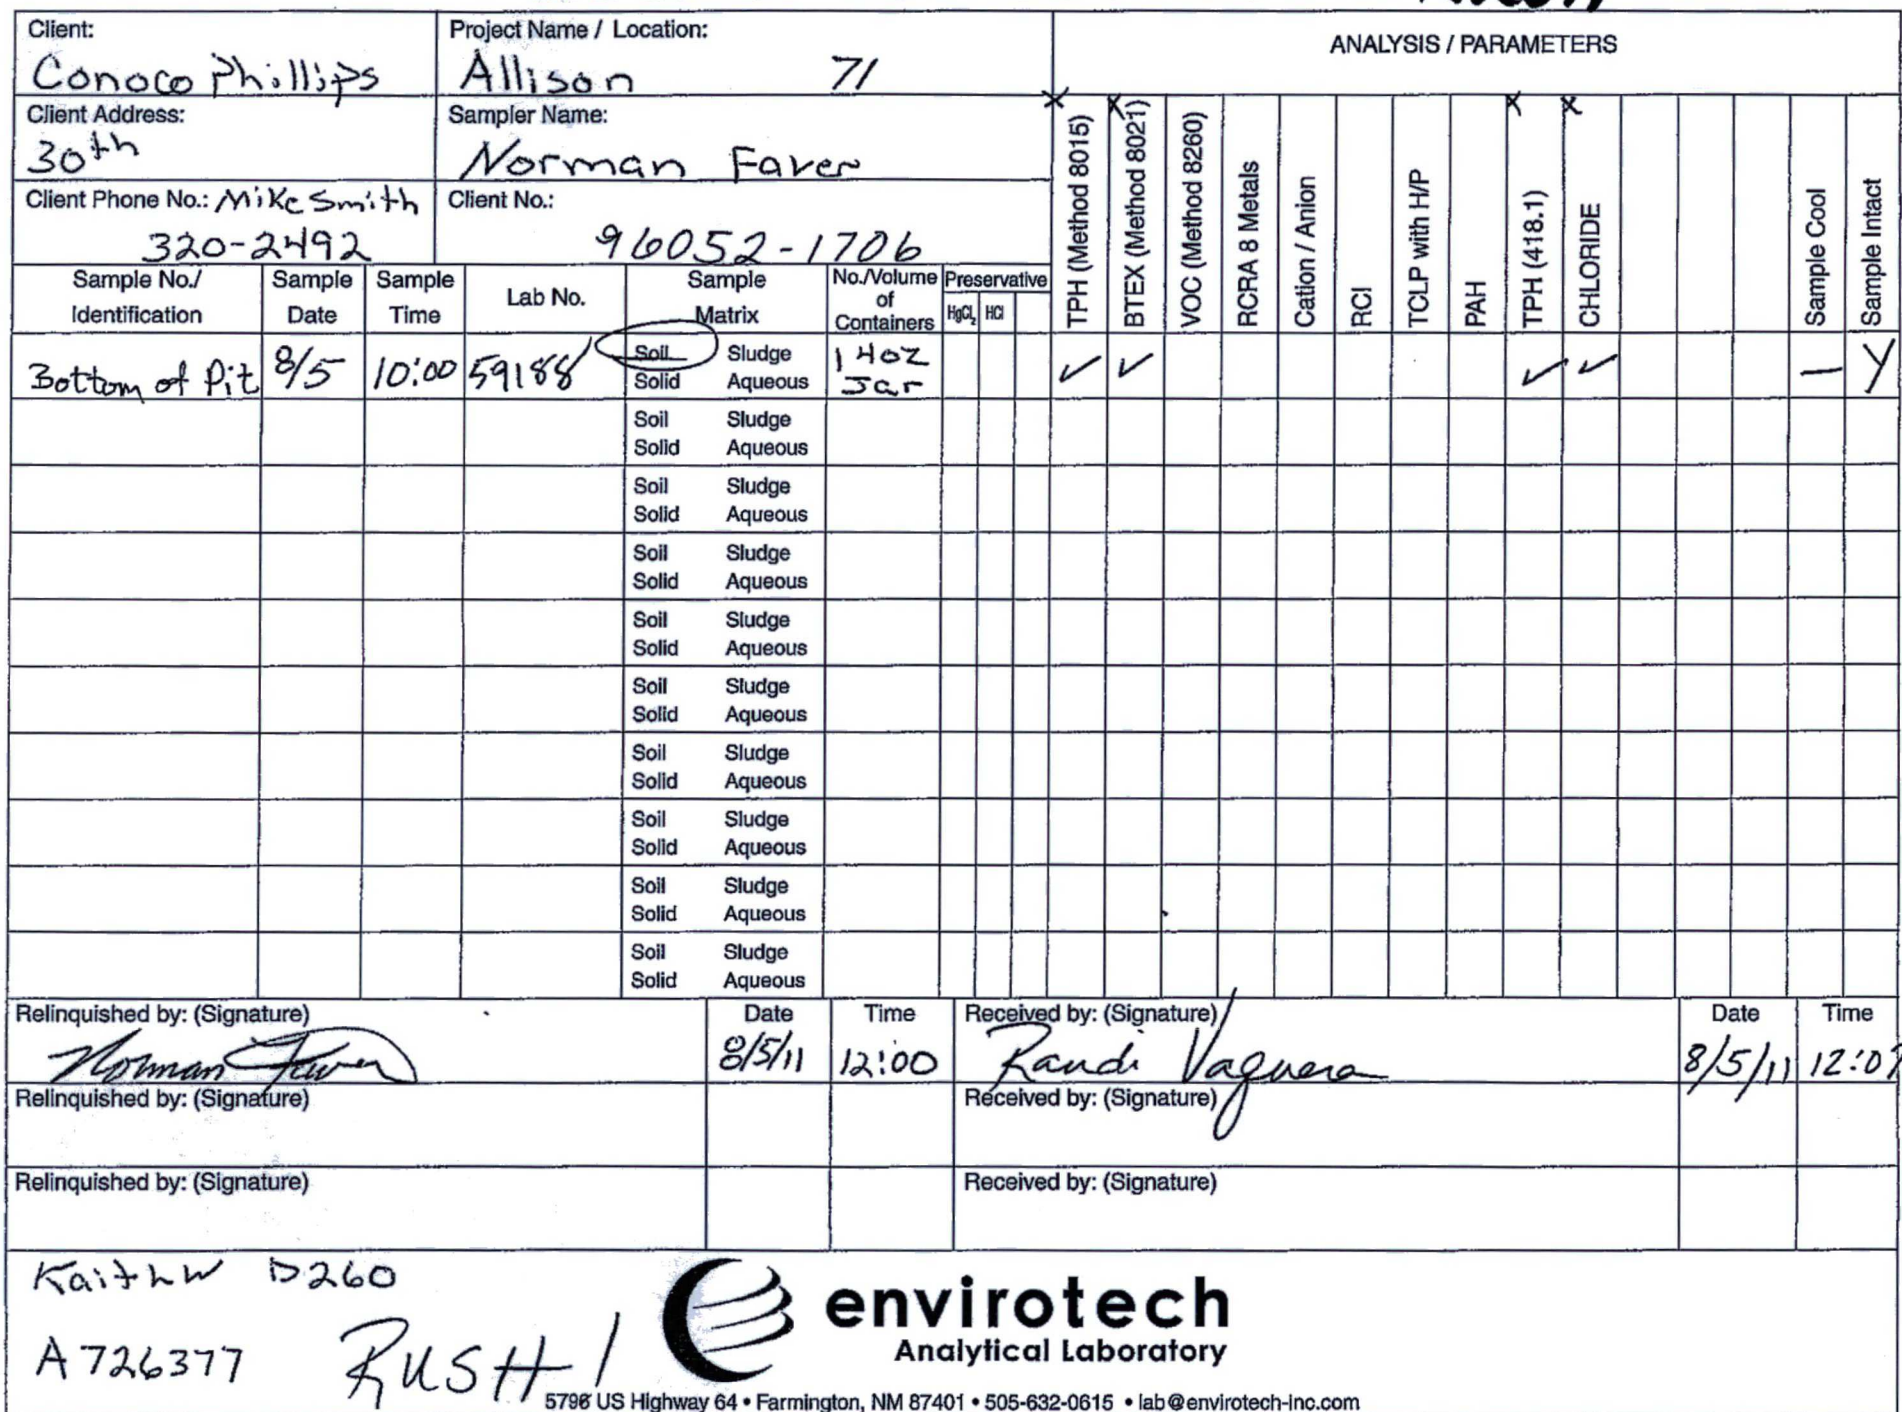 Client:
Conoco Phillips
Project Name / Location:
Allison 71
ANALYSIS / PARAMETERS
Client Address:
30th
Sampler Name:
Norman Faver
Client Phone No.: Mike Smith
320-2492
Client No.:
96052-1706
Sample No./ Identification
Sample Date
Sample Time
Lab No.
Sample Matrix
No./Volume of Containers
Preservative
HgCl2 HCl
x TPH (Method 8015)
x BTEX (Method 8021)
VOC (Method 8260)
RCRA 8 Metals
Cation / Anion
RCI
TCLP with H/P
PAH
x TPH (418.1)
x CHLORIDE
Sample Cool
Sample Intact
Bottom of Pit 8/5 10:00 59188 Soil Sludge 1 4oz ✓ ✓ ✓ ✓ — Y
Solid Aqueous Jar
Soil Sludge
Solid Aqueous
Soil Sludge
Solid Aqueous
Soil Sludge
Solid Aqueous
Soil Sludge
Solid Aqueous
Soil Sludge
Solid Aqueous
Soil Sludge
Solid Aqueous
Soil Sludge
Solid Aqueous
Soil Sludge
Solid Aqueous
Soil Sludge
Solid Aqueous
Relinquished by: (Signature) Date Time Received by: (Signature) Date Time
Norman Faver 8/5/11 12:00 Randi Vaquera 8/5/11
Relinquished by: (Signature) Received by: (Signature)
Relinquished by: (Signature) Received by: (Signature)
D260
A726377 RUSH!
envirotech
Analytical Laboratory
5796 US Highway 64 • Farmington, NM 87401 • 505-632-0615 • lab@envirotech-inc.com